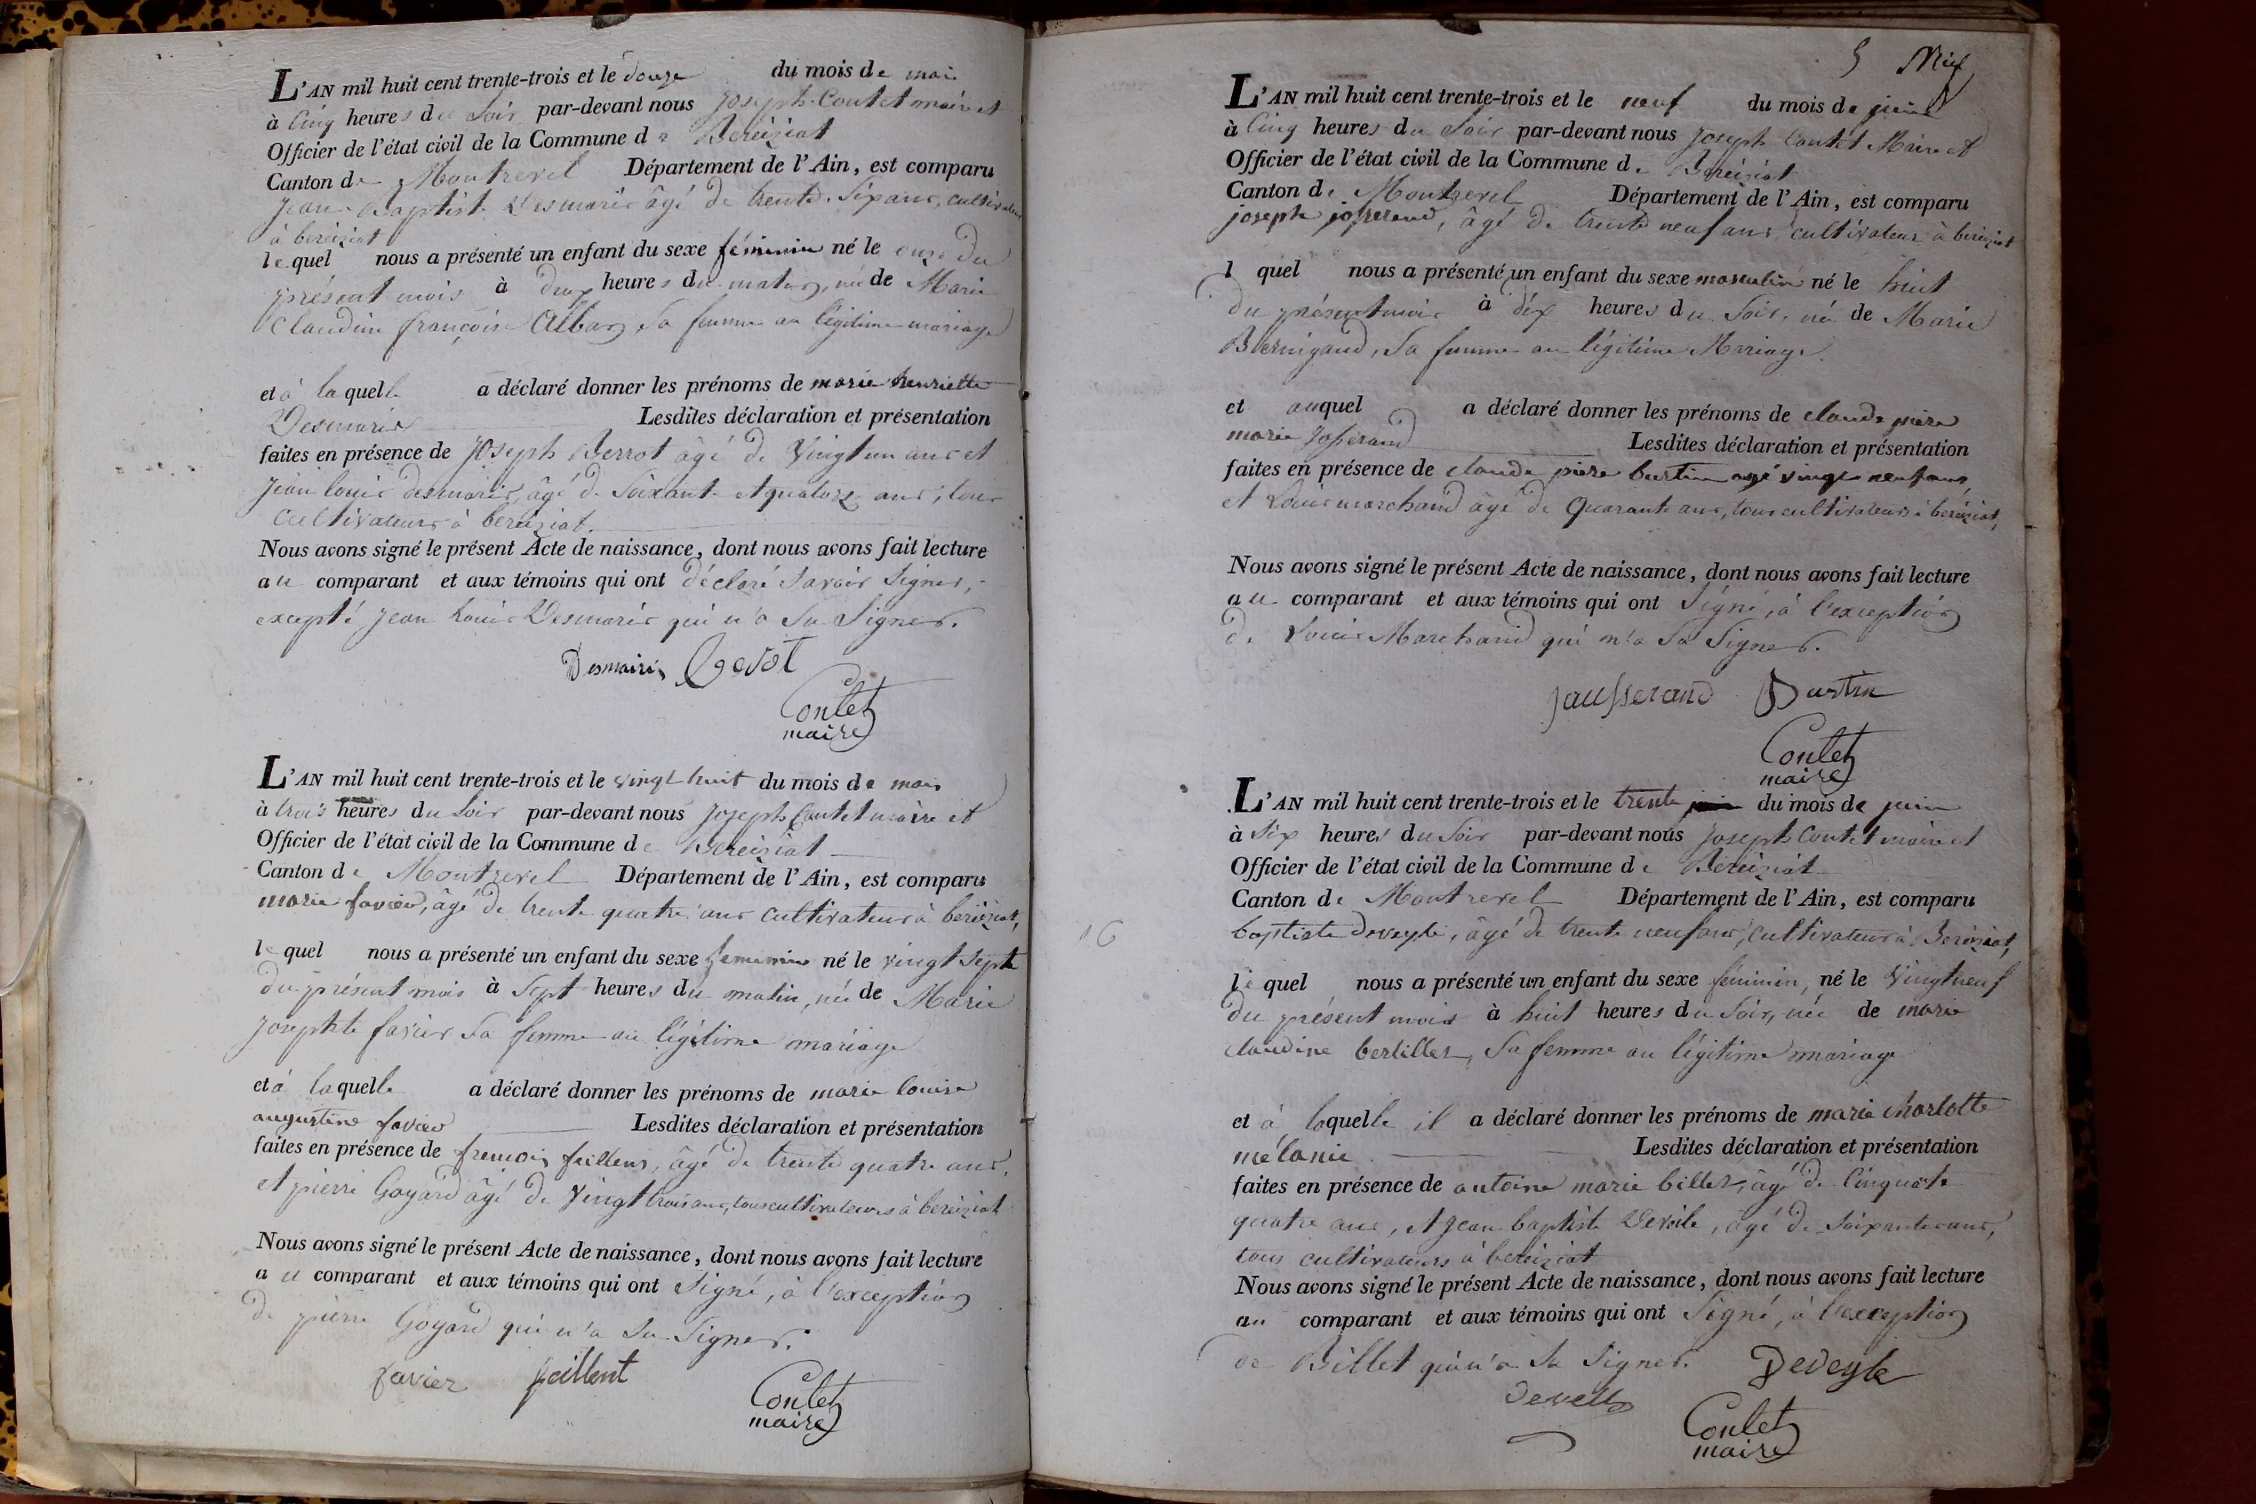 L'AN mil huit cent trente-trois et le douze du mois de mai
à Cinq heures du Soir par-devant nous Joseph Contet maire et
Officier de l'état civil de la Commune de Bereiziat
Canton de Montrevel Département de l'Ain, est comparu
Jean Baptiste Desmaris âgé de trente Six ans, cultivateur
à bereiziat
lequel nous a présenté un enfant du sexe féminin né le onze du
présent mois à deux heures du matin, née de Marie
Claudine françoise Alban Sa femme en légitime mariage
et à laquelle a déclaré donner les prénoms de marie henriette
Desmaris Lesdites déclaration et présentation
faites en présence de Joseph Berrot âgé de Vingt un ans et
Jean louis desmaris, âgé de Soixante et quatorze ans, tous
cultivateurs à bereiziat.
Nous avons signé le présent Acte de naissance, dont nous avons fait lecture
au comparant et aux témoins qui ont déclaré Savoir Signer,
excepté Jean Louis Desmaris qui n'a Su Signer.
Desmairis
Contet
maire
L'AN mil huit cent trente-trois et le vingt huit du mois de mai
à trois heures du Soir par-devant nous Joseph Contet maire et
Officier de l'état civil de la Commune de Bereiziat
Canton de Montrevel Département de l'Ain, est comparu
marie favier, âgé de trente quatre ans cultivateur à bereiziat,
lequel nous a présenté un enfant du sexe femenin né le vingt Sept
du présent mois à Sept heures du matin, née de Marie
Josephte favier Sa femme en légitime mariage
et à laquelle a déclaré donner les prénoms de marie louise
augustine favier Lesdites déclaration et présentation
faites en présence de francois faillent, âgé de trente quatre ans,
et pierre Goyard âgé de Vingt trois ans, tous cultivateurs à bereiziat
Nous avons signé le présent Acte de naissance, dont nous avons fait lecture
au comparant et aux témoins qui ont Signé, à l'exception
de pierre Goyard qui n'a Su Signer.
favier faillent
Contet
maire
5
L'AN mil huit cent trente-trois et le neuf du mois de juin
à Cinq heures du Soir par-devant nous Joseph Contet Maire et
Officier de l'état civil de la Commune de Bereiziat
Canton de Montrevel Département de l'Ain, est comparu
joseph josserand, âgé de trente neuf ans cultivateur à bereiziat
lquel nous a présenté un enfant du sexe masculin né le huit
du présent mois à dix heures du Soir, né de Marie
Bernigaud, Sa femme en légitime Mariage.
et auquel a déclaré donner les prénoms de claude piere
marie Josserand Lesdites déclaration et présentation
faites en présence de claude piere burtin agé vingt neuf ans,
et Louis marchand âgé de Quarante ans, tous cultivateurs à bereiziat,
Nous avons signé le présent Acte de naissance, dont nous avons fait lecture
au comparant et aux témoins qui ont Signé, à l'exception
de Louis Marchand qui n'a Su Signer.
jausserand Burtin
Contet
maire
L'AN mil huit cent trente-trois et le trente du mois de juin
à Six heures du Soir par-devant nous Joseph Contet maire et
Officier de l'état civil de la Commune de Bereiziat
Canton de Montrevel Département de l'Ain, est comparu
baptiste deveyle, âgé de trente neuf ans, cultivateur à Bereiziat,
16
lequel nous a présenté un enfant du sexe féminin, né le Vingt neuf
du présent mois à huit heures du Soir, née de marie
claudine bertillet, Sa femme en légitime mariage
et à laquelle il a déclaré donner les prénoms de marie charlotte
mélanie Lesdites déclaration et présentation
faites en présence de antoine marie billet, âgé de Cinquante
quatre ans, et Jean baptiste Deveile, âgé de Soixante ans,
tous cultivateurs à bereiziat
Nous avons signé le présent Acte de naissance, dont nous avons fait lecture
au comparant et aux témoins qui ont Signé, à l'exception
de Billet qui n'a Su Signer. Deveyle
Contet
maire